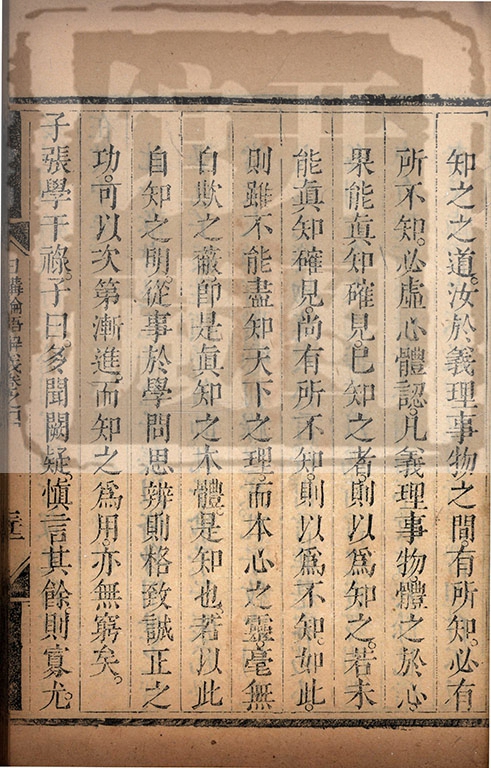 知之之道。汝於義理事物之間。有所知。必有
所不知。必虛心體認。凡義理事物。體之於心
果能眞知確見。已知之者。則以爲知之。若未
能眞知確見。尚有所不知。則以爲不知。如此。
則雖不能盡知天下之理。而本心之靈。毫無
自欺之蔽。卽是眞知之本體。是知也。若以此
自知之明。從事於學問思辨。則格致誠正之
功。可以次第漸進。而知之爲用。亦無窮矣。
子張學干祿。子曰。多聞闕疑。愼言其餘。則寡尤。